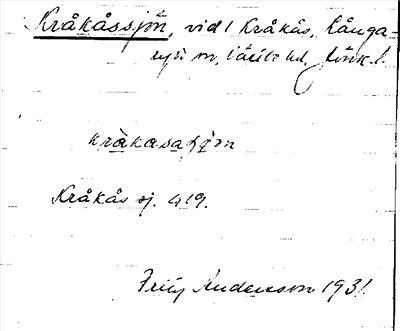 Kråkåssjön, vid 1 Kråkås, Långa-
ryd sn, Västbo hd, Jönk. l.
kråkasaſöøn
Kråkås sj. 419.
Fritz Andersson 1931.